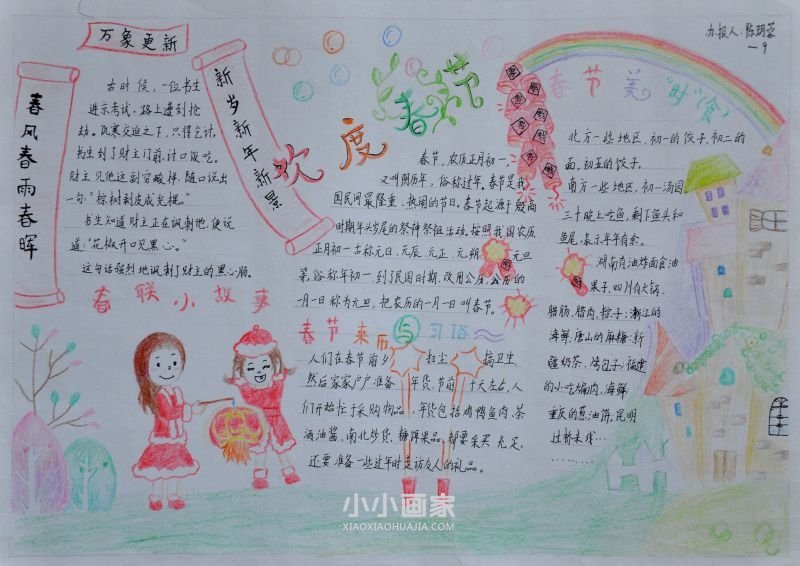 万象更新
春风春雨春晖
新岁新年新景
欢度春节
古时候，一位书生
进京考试，路上遭到抢
劫。饥寒交迫之下，只得乞讨。
书生到了财主门前，讨口饭吃。
财主见他这副穷酸样，随口说出
一句：“棕树剥皮成光棍。”
书生知道财主正在讽刺他，便说
道：“花椒开口见黑心。”
这句话强烈地讽刺了财主的黑心顺。
春联小故事
春节，农历正月初一，
又叫阴历年，俗称过年。春节是我
国民间最隆重、热闹的节日。春节起源于殷商
时期年头岁尾的祭神祭祖活动。按照我国农历
正月初一古称元日、元辰、元正、元朔、元旦
等，俗称年初一，到了民国时期，改用公历，公历的
一月一日称为元旦，把农历的一月一日叫春节。
春节来历与习俗
人们在春节前夕 扫尘 搞卫生，
然后家家户户准备 年货，节前 十天左右，人
们开始忙于采购物品，年货包括鸡鸭鱼肉、茶
酒油酱、南北炒货、糖饵果品，都要采买充足，
还要准备一些过年时走访友人的礼品。
办报人：陈玥莹
一9
春节美“时”(食)
北方一些地区，初一的饺子，初二的
面，初五的饺子。
南方一些地区，初一汤圆。
三十晚上吃鱼，剩下鱼头和
鱼尾，表示年年有余。
湖南有油炸面食油
果子，四川有火锅、
腊肠、腊肉、粽子；浙江的
海鲜，唐山的麻糖；新
疆奶茶、烤包子；福建
的小吃扁肉，海鲜
重庆的葱油饼，昆明
过桥米线……
小小画家
XIAOXIAOHUAJIA.COM